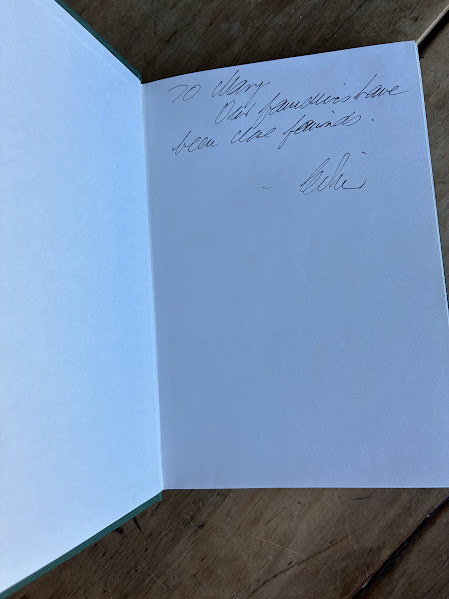 To Mary
Our families have
been close friends.
-